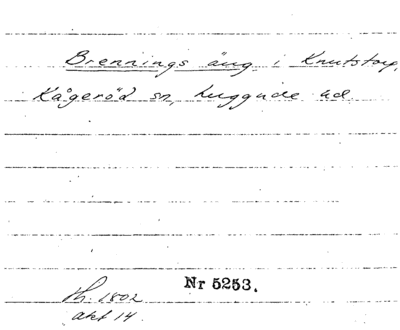 Brennings äng i Knutstorp,
Kågeröd sn, Luggude hd.
Nr 5253.
Lh. 1802
akt 14.